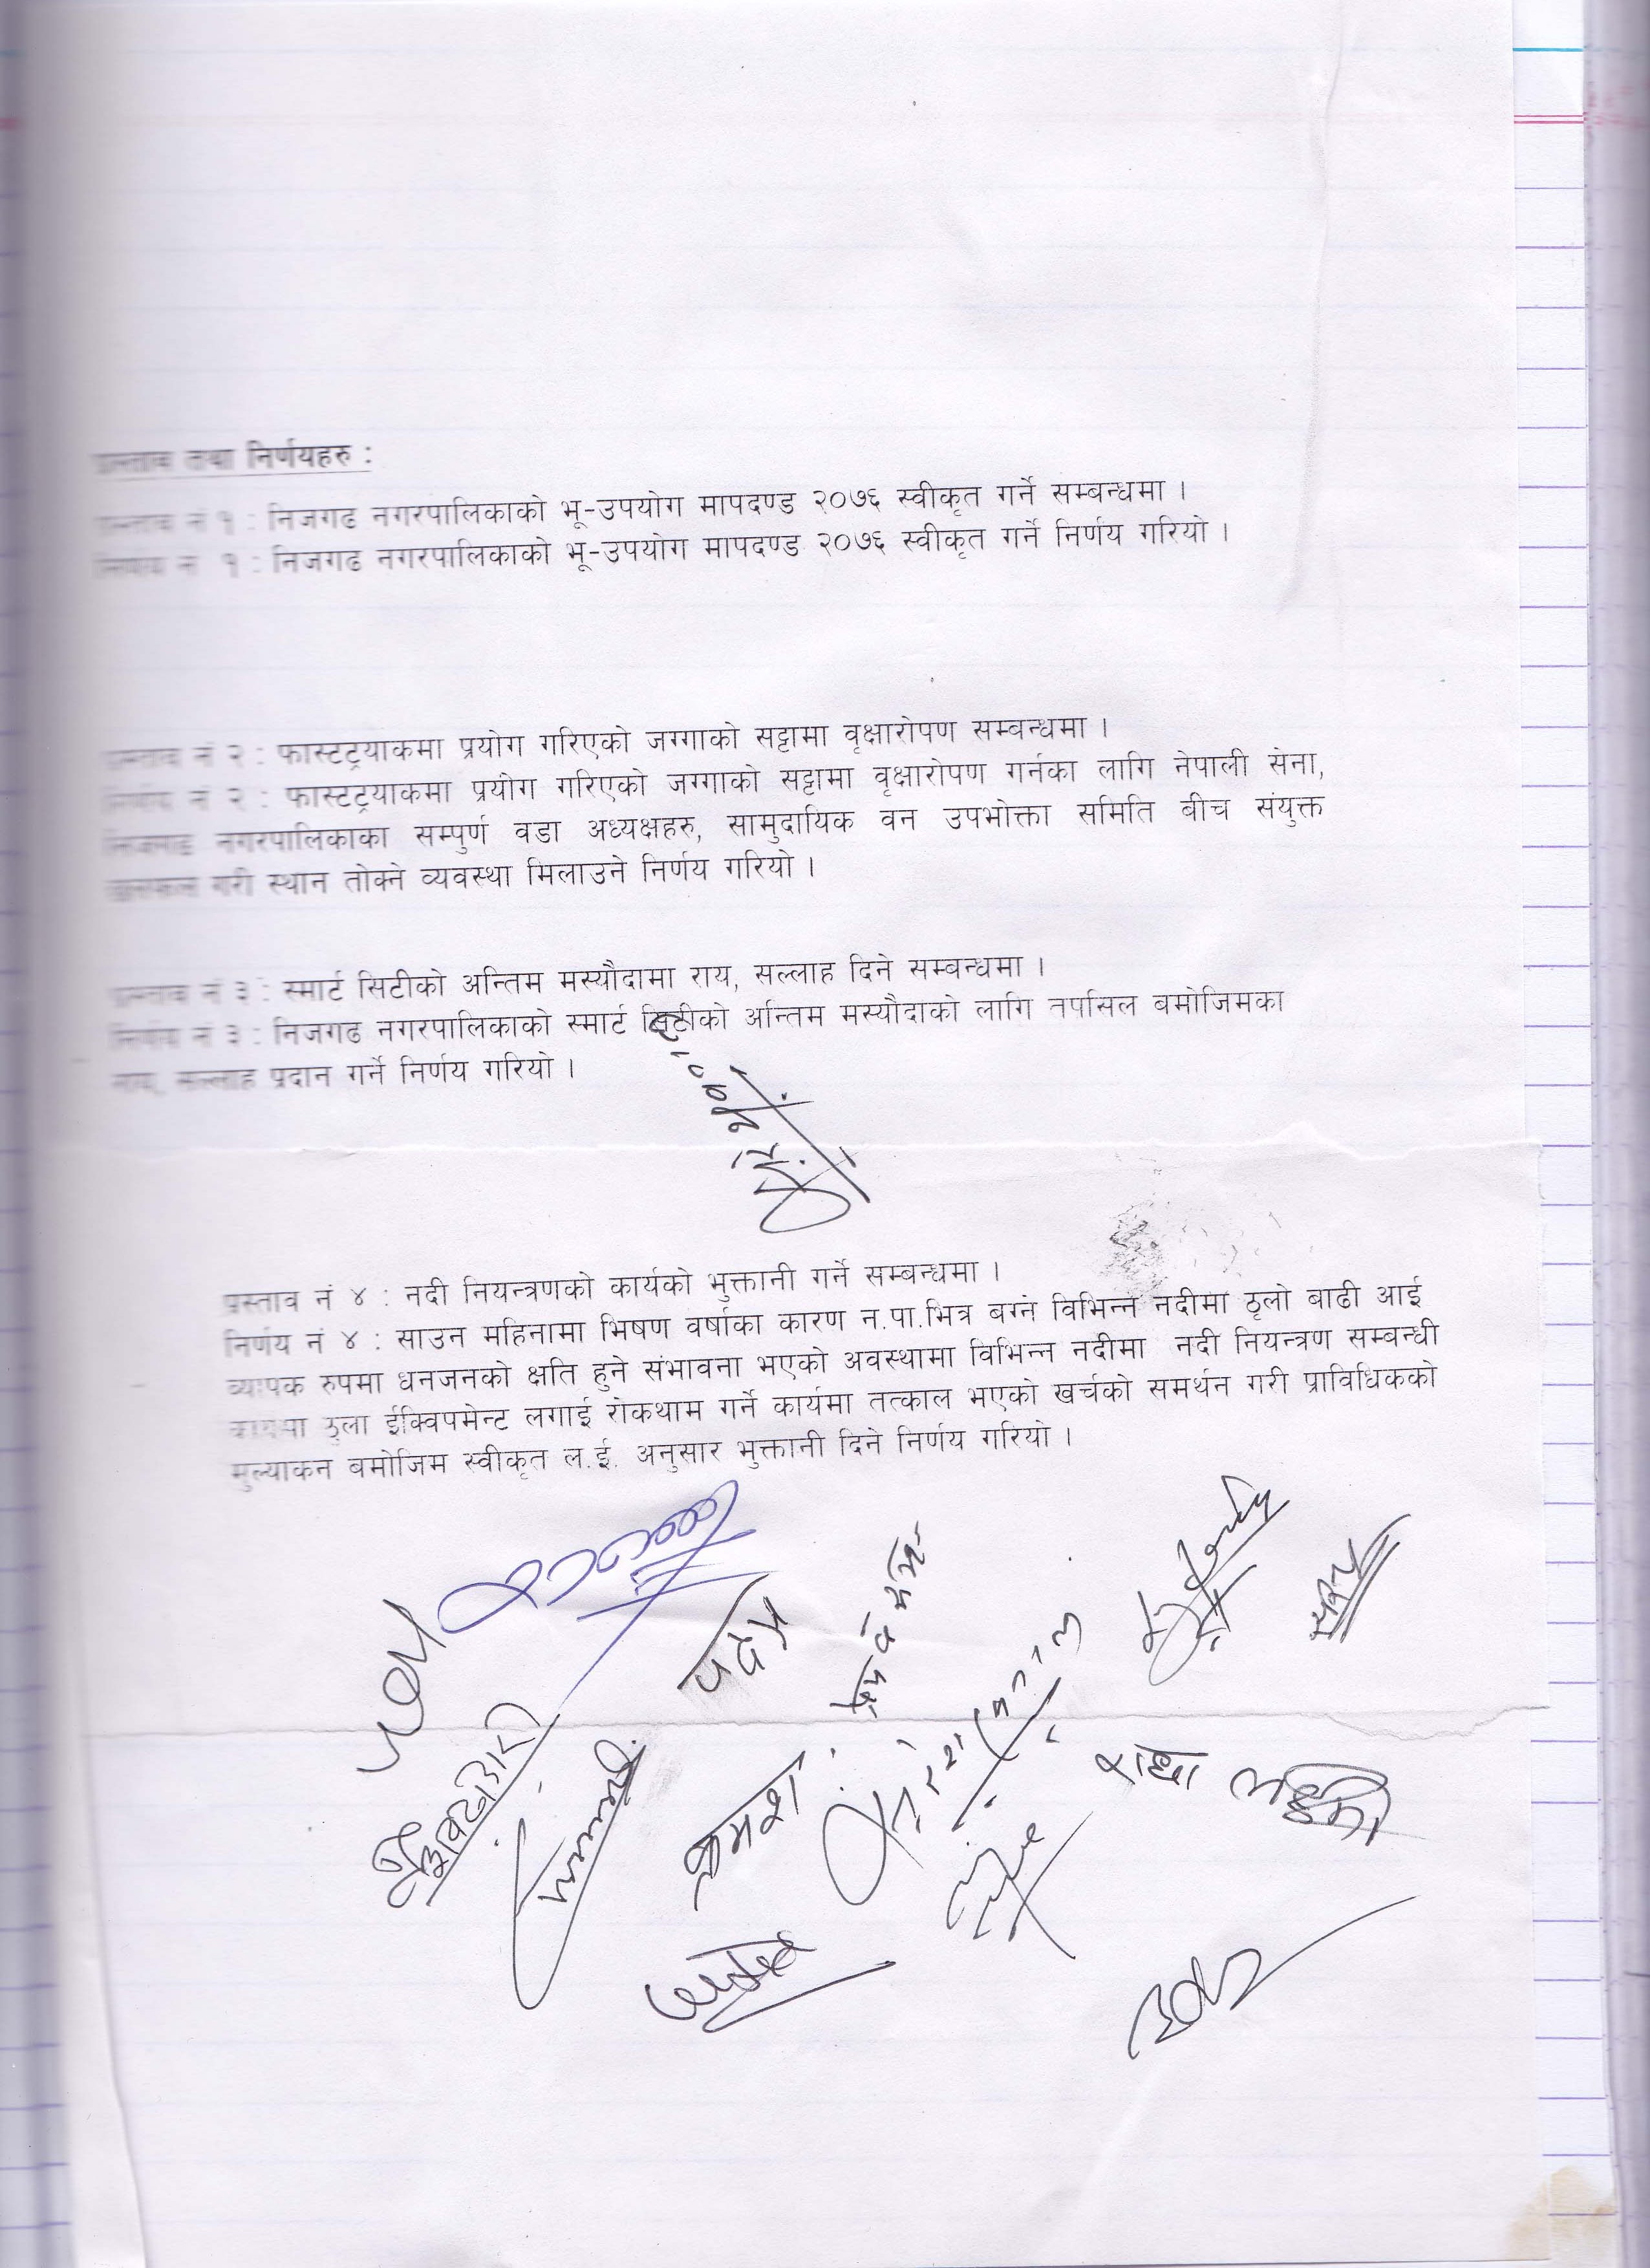 प्रस्ताव तथा निर्णयहरु :
प्रस्ताव नं १ : निजगढ नगरपालिकाको भू-उपयोग मापदण्ड २०७६ स्वीकृत गर्ने सम्बन्धमा ।
निर्णय नं १ : निजगढ नगरपालिकाको भू-उपयोग मापदण्ड २०७६ स्वीकृत गर्ने निर्णय गरियो ।
प्रस्ताव नं २ : फास्टट्रयाकमा प्रयोग गरिएको जग्गाको सट्टामा वृक्षारोपण सम्बन्धमा ।
निर्णय नं २ : फास्टट्रयाकमा प्रयोग गरिएको जग्गाको सट्टामा वृक्षारोपण गर्नका लागि नेपाली सेना,
निजगढ नगरपालिकाका सम्पुर्ण वडा अध्यक्षहरु, सामुदायिक वन उपभोक्ता समिति बीच संयुक्त
छलफल गरी स्थान तोक्ने व्यवस्था मिलाउने निर्णय गरियो ।
प्रस्ताव नं ३ : स्मार्ट सिटीको अन्तिम मस्यौदामा राय, सल्लाह दिने सम्बन्धमा ।
निर्णय नं ३ : निजगढ नगरपालिकाको स्मार्ट सिटीको अन्तिम मस्यौदाको लागि तपसिल बमोजिमका
सल्लाह प्रदान गर्ने निर्णय गरियो ।
प्रस्ताव नं ४ : नदी नियन्त्रणको कार्यको भुक्तानी गर्ने सम्बन्धमा ।
निर्णय नं ४ : साउन महिनामा भिषण वर्षाका कारण न.पा.भित्र बग्ने विभिन्न नदीमा ठूलो बाढी आई
व्यापक रुपमा धनजनको क्षति हुने संभावना भएको अवस्थामा विभिन्न नदीमा नदी नियन्त्रण सम्बन्धी
ठुला ईक्विपमेन्ट लगाई रोकथाम गर्ने कार्यमा तत्काल भएको खर्चको समर्थन गरी प्राविधिकको
मुल्याकन बमोजिम स्वीकृत ल.ई. अनुसार भुक्तानी दिने निर्णय गरियो ।
क्रमश
राधा